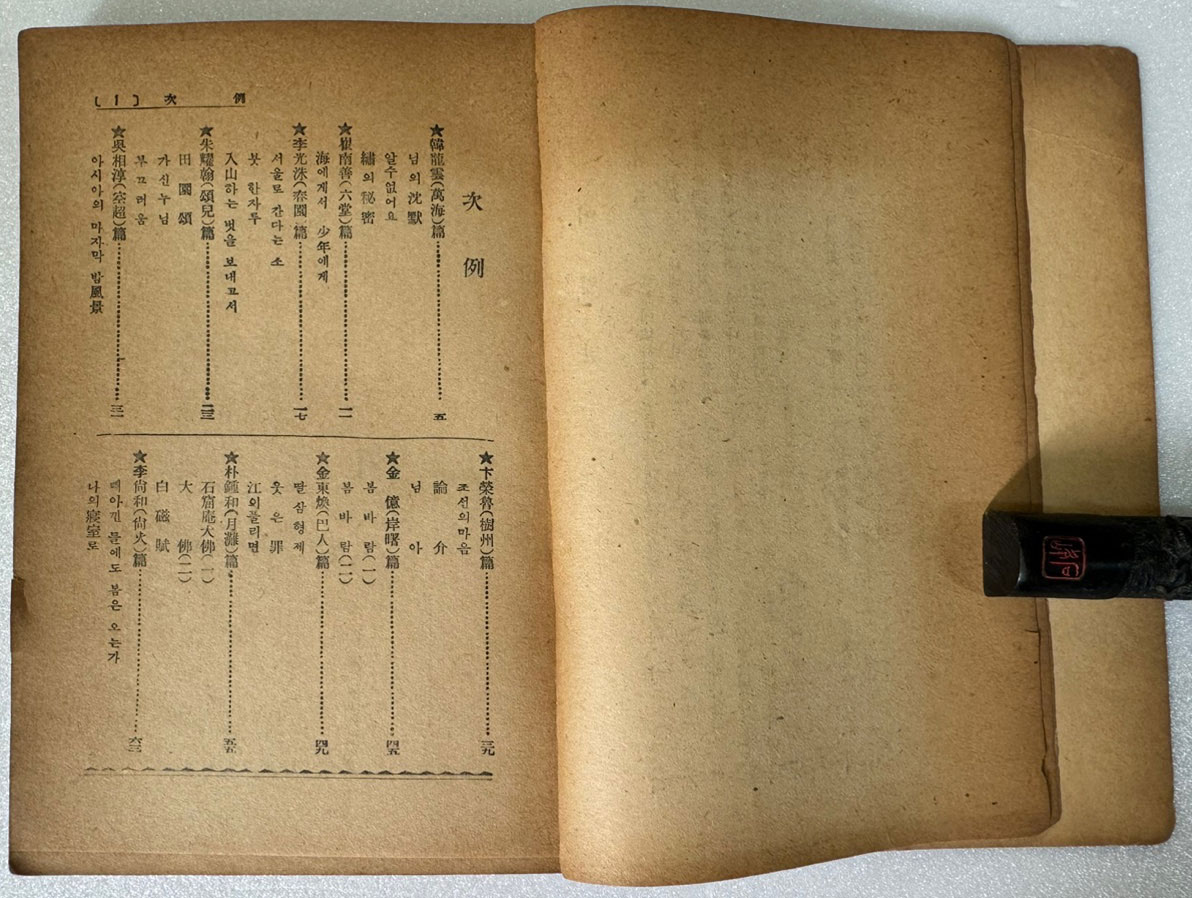 次例 〔1〕
次例
★韓龍雲(萬海)篇……五
님의 沈默
알수없어요
繡의 秘密
★崔南善(六堂)篇……一一
海에게서 少年에게
★李光洙(春園)篇……一七
서울로 간다는 소
붓 한자루
入山하는 벗을 보내고서
★朱耀翰(頌兒)篇……二三
田園頌
가신누님
부끄러움
★吳相淳(空超)篇……三一
아시아의 마지막 밤風景
★卞榮魯(樹州)篇……三九
조선의마음
論介
님아
★金億(岸曙)篇……四五
봄바람(一)
봄바람(二)
★金東煥(巴人)篇……四九
딸삼형제
웃은罪
江이풀리면
★朴鍾和(月灘)篇……五五
石窟庵大佛(一)
大佛(二)
白磁賦
★李尙和(尙火)篇……六三
빼아긴 들에도 봄은 오는가
나의寢室로